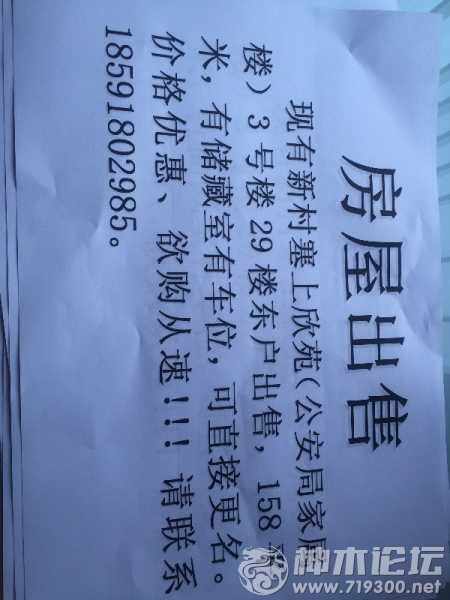 房屋出售
现有新村塞上欣苑(公安局家属
楼) 3号楼29楼东户出售, 158平
米, 有储藏室有车位, 可直接更名。
价格优惠、欲购从速!!! 请联系
18591802985。
神木论坛
www.719300.net